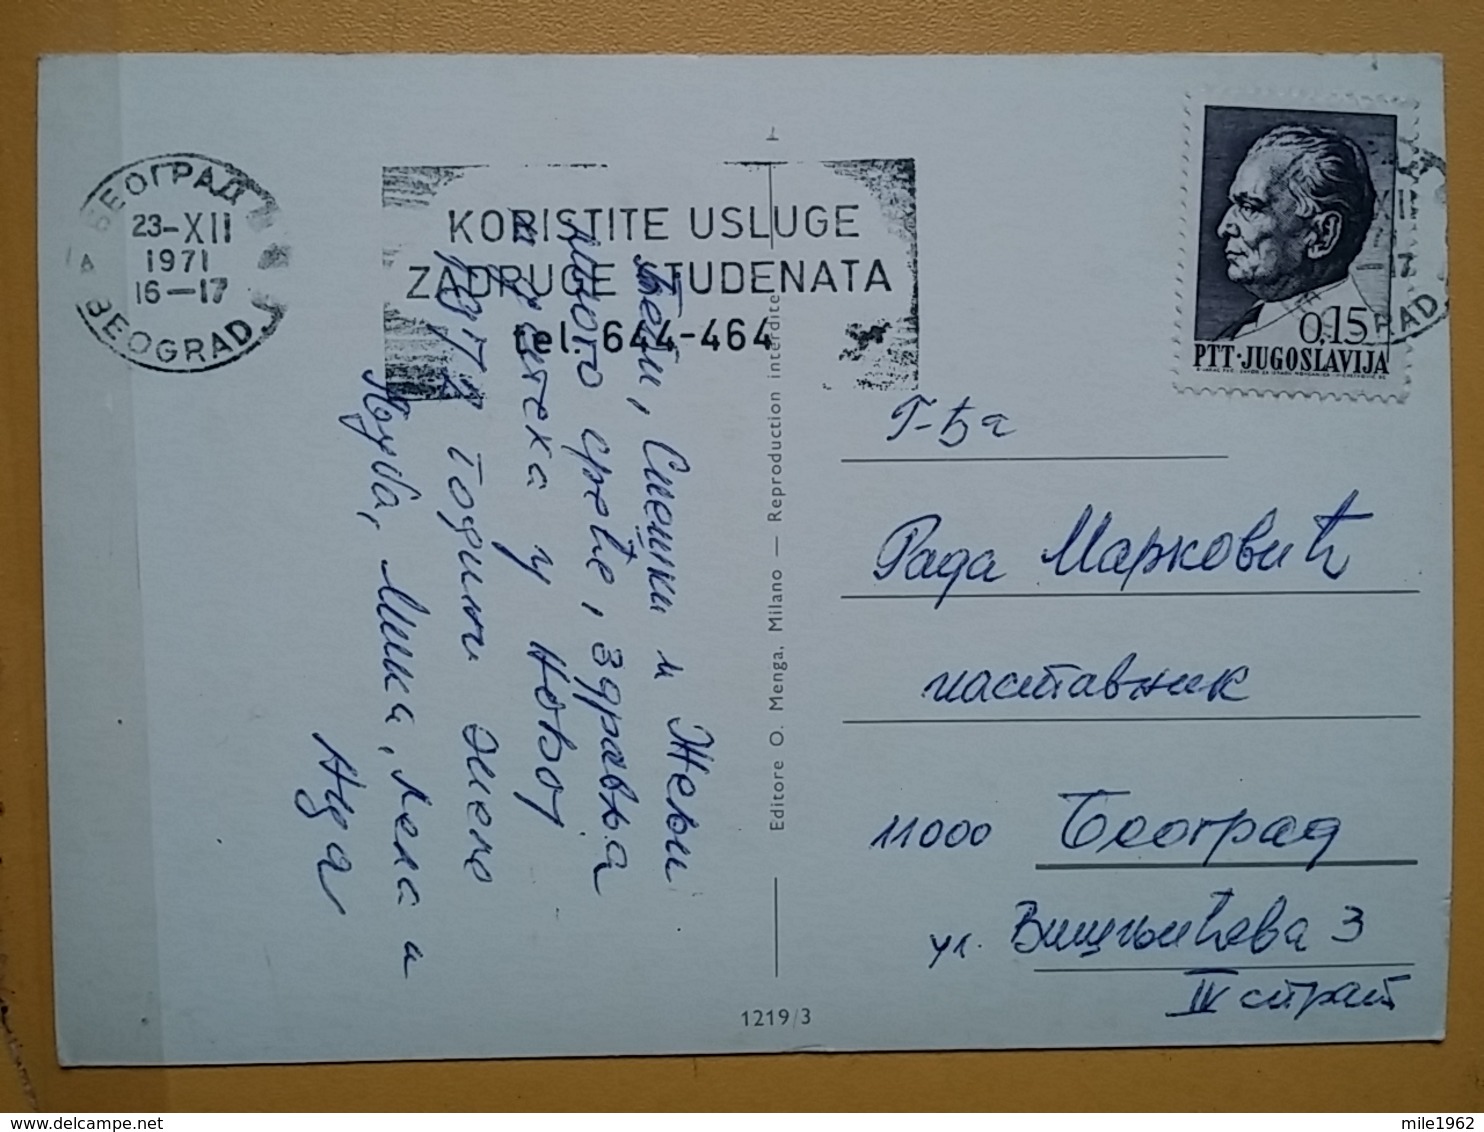 БЕОГРАД
23-XII
1971
16-17
BEOGRAD
KORISTITE USLUGE
ZADRUGE STUDENATA
tel. 644-464
0,15
PTT·JUGOSLAVIJA
Бети, Спешки и Жељи
Много среће, здравља
и успеха у Новој
1972 години желе
Љуба, Мика, Лела и
Ада
Editore O. Menga, Milano — Reproduction interdite
1219/3
Г-ђа
Рада Марковић
наставник
11000 Београд
ул. Вишњићева 3
IV спрат
mile1962